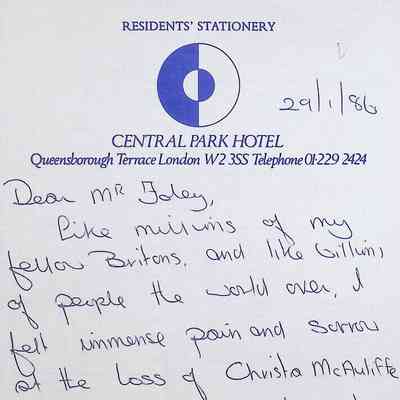 RESIDENTS' STATIONERY
29/1/86
CENTRAL PARK HOTEL
Queensborough Terrace London W2 3SS Telephone 01-229 2424
Dear Mr Foley,
Like millions of my
fellow Britons, and like billions
of people the world over, I
felt immense pain and sorrow
at the loss of Christa McAuliffe